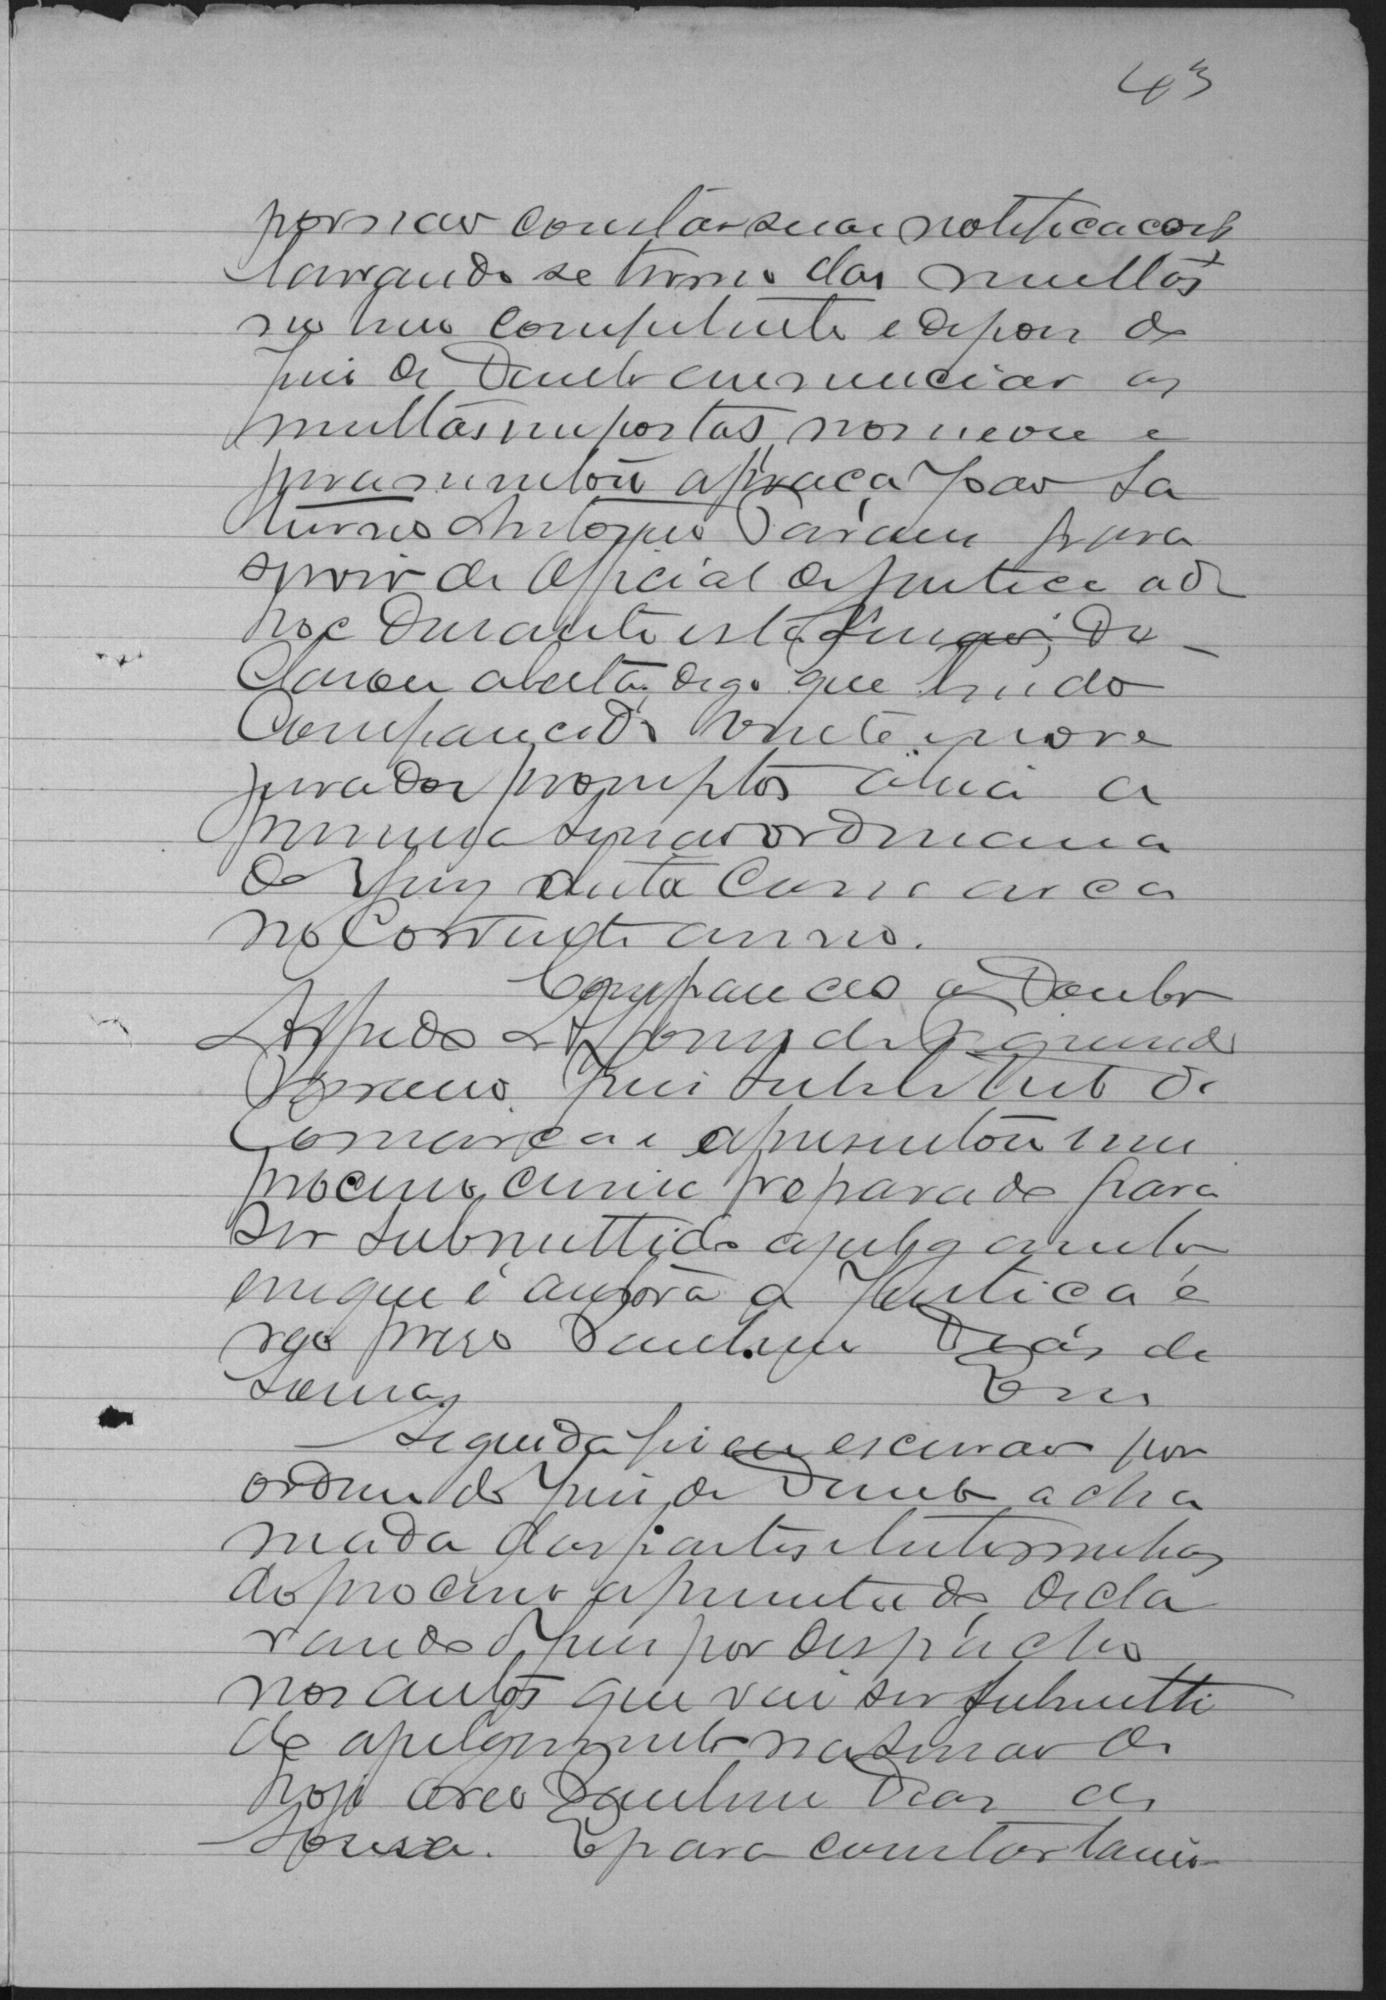 43
por não constar suas notificacoes
lavrando se termo das multas
no livro competente e depois do
Juis de Direito annunciar as
multas impostas, nomeou e
juramentou a praça João Sa
turnino Antonio para
servir de Official de justica ad
hoc durante esta sessão; De
clarou aberta, digo que tendo
Comparecido vinte e nove
jurados promptos abria a
primeira sessão ordinaria
do Jury desta Comarca
no Corrente anno.
Compareceo o Doutor
Alfredo de
Juis Substituto da
Comarca e apresentou um
processo crime preparado para
ser submettido a julgamento
em que é autora a Justica e
reo preso Paulino Dias de
Sousa. Em
Seguida fis eu escrivão por
ordem do Juis de Direito a cha
mada das partes e testemunhas
do processo apresentado, decla
rando o Juis por despacho
nos autos que vai ser submetti
do a julgamento na sessão de
hoje o reo Paulino Dias de
Sousa. E para constar lavro